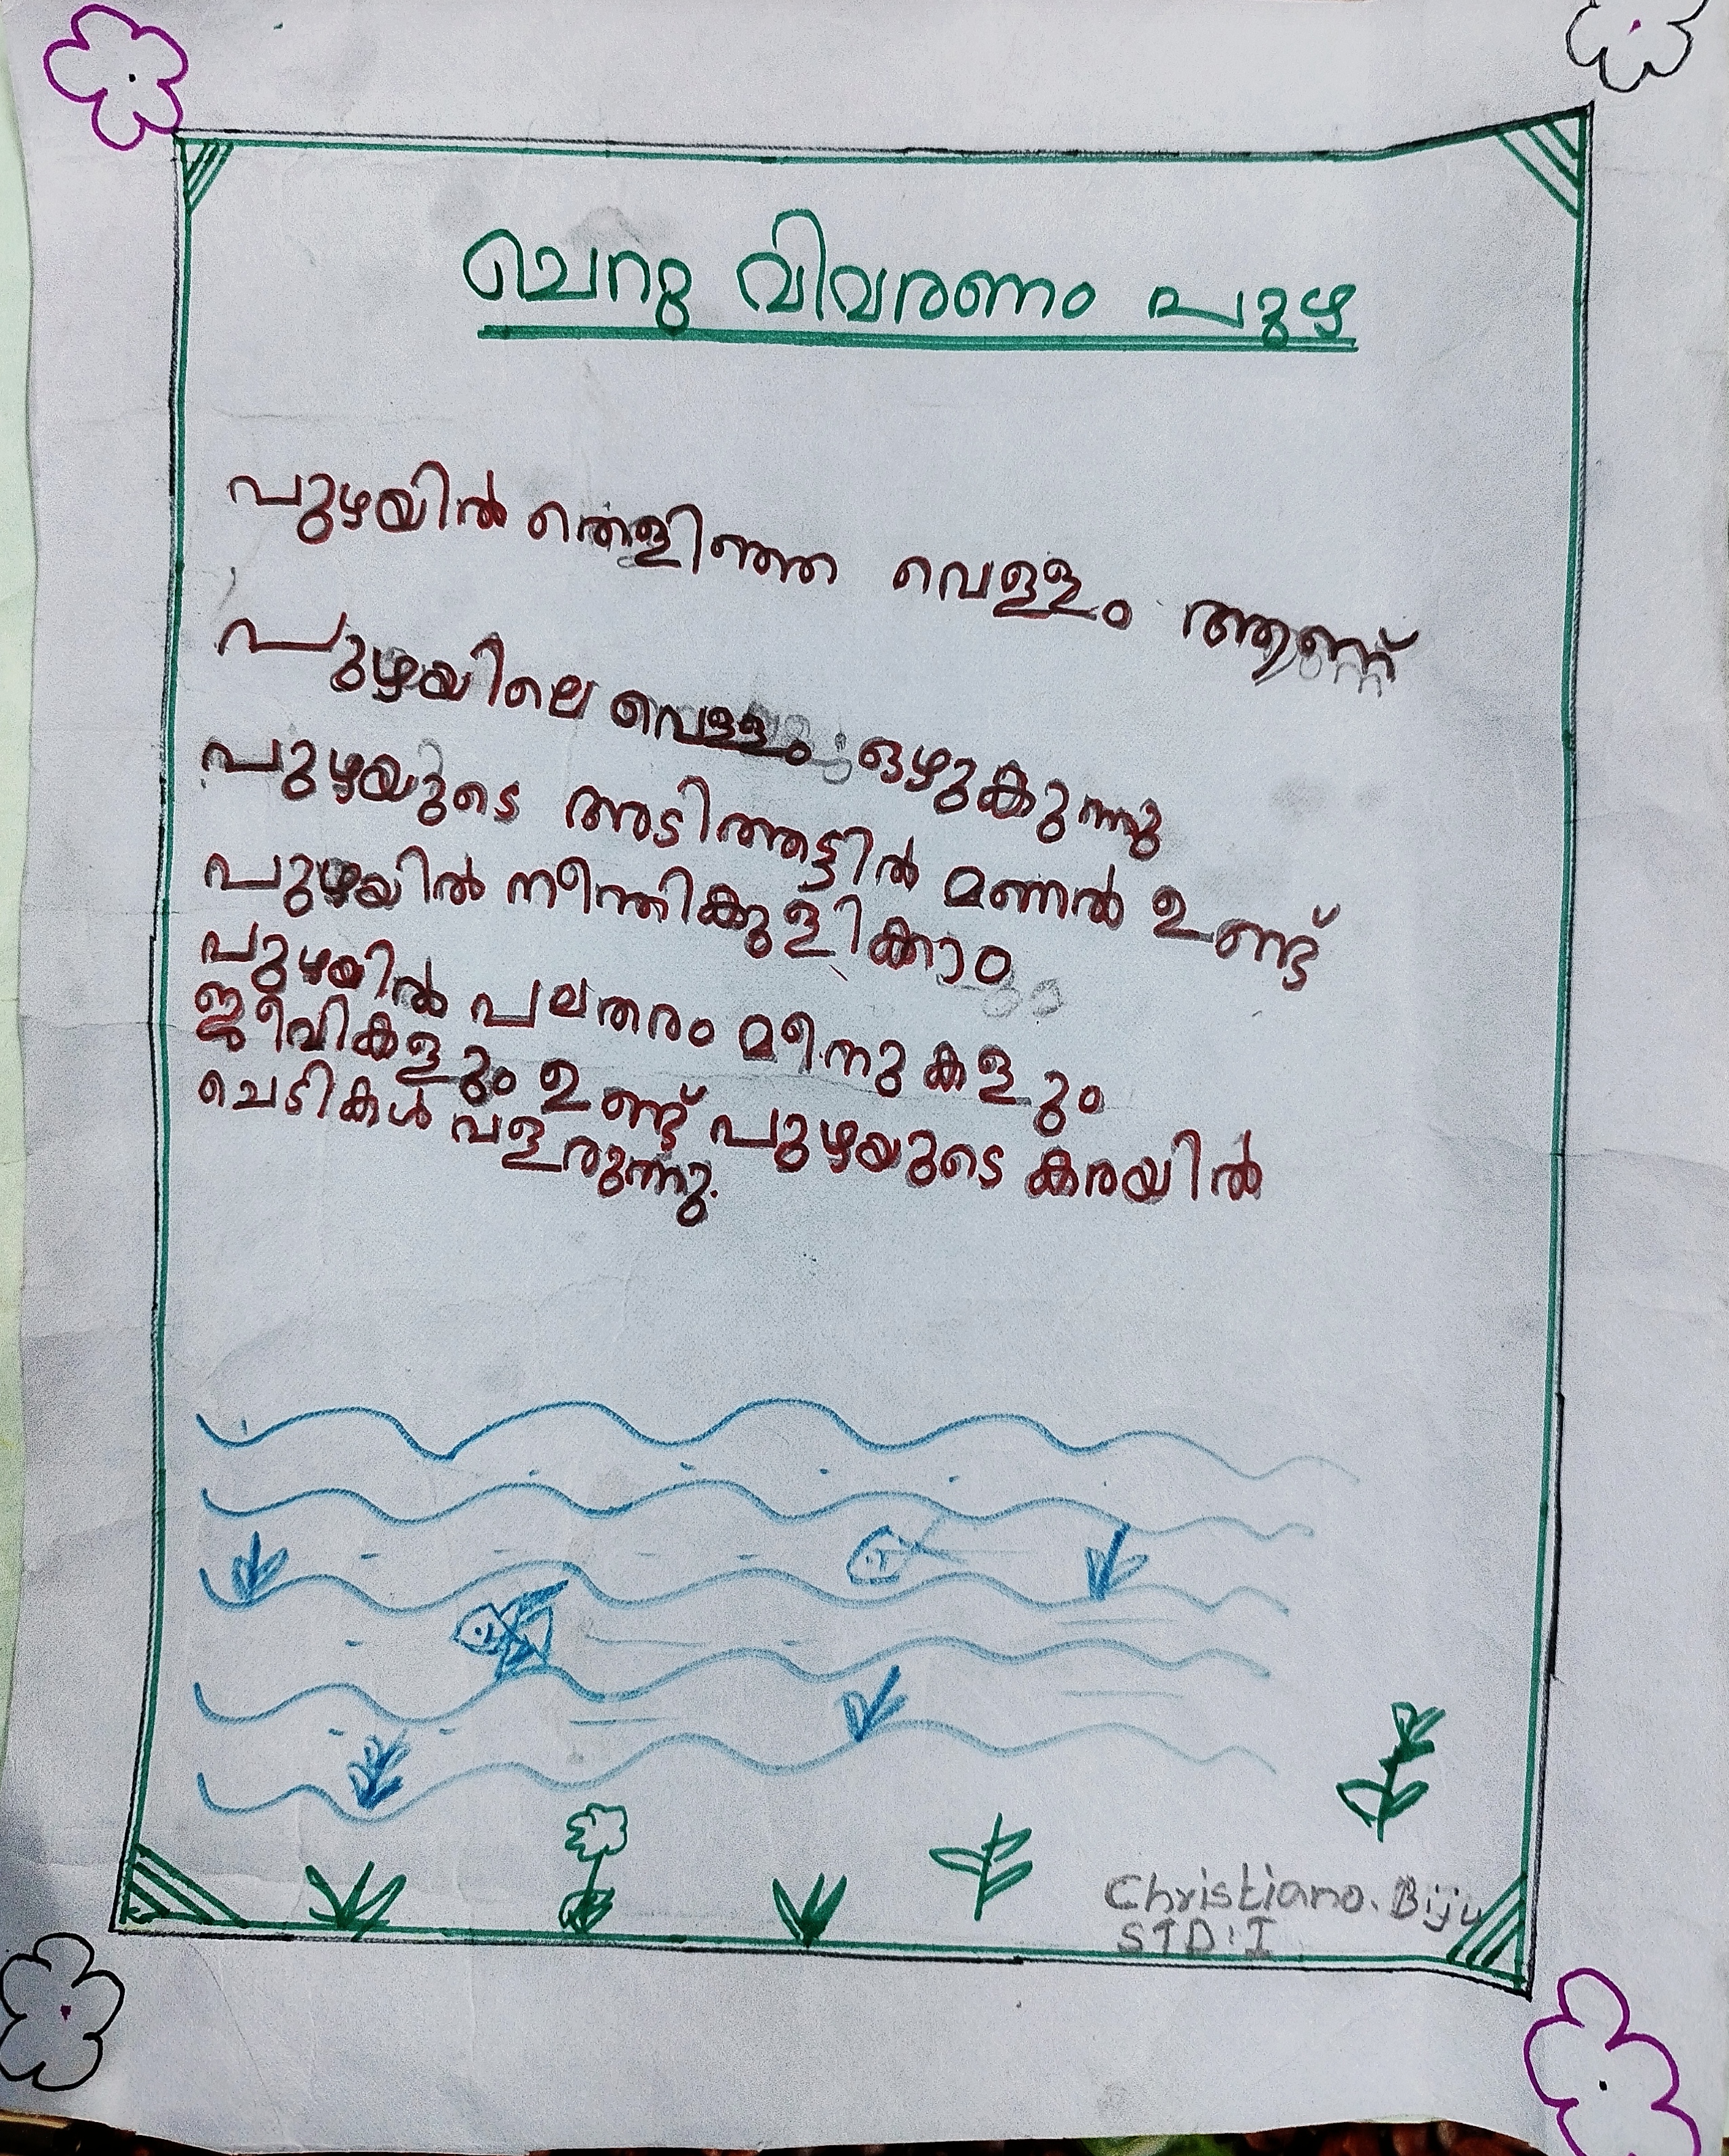 ചെറു വിവരണം പുഴ
പുഴയിൽ തെളിഞ്ഞ വെള്ളം ആണ്
പുഴയിലെ വെള്ളം ഒഴുകുന്നു
പുഴയുടെ അടിത്തട്ടിൽ മണൽ ഉണ്ട്
പുഴയിൽ നീന്തികുളിക്കാം
പുഴയിൽ പലതരം മീനുകളും
ജീവികളും ഉണ്ട് പുഴയുടെ കരയിൽ
ചെടികൾ വളരുന്നു.
Christiano. Biju
STD:I